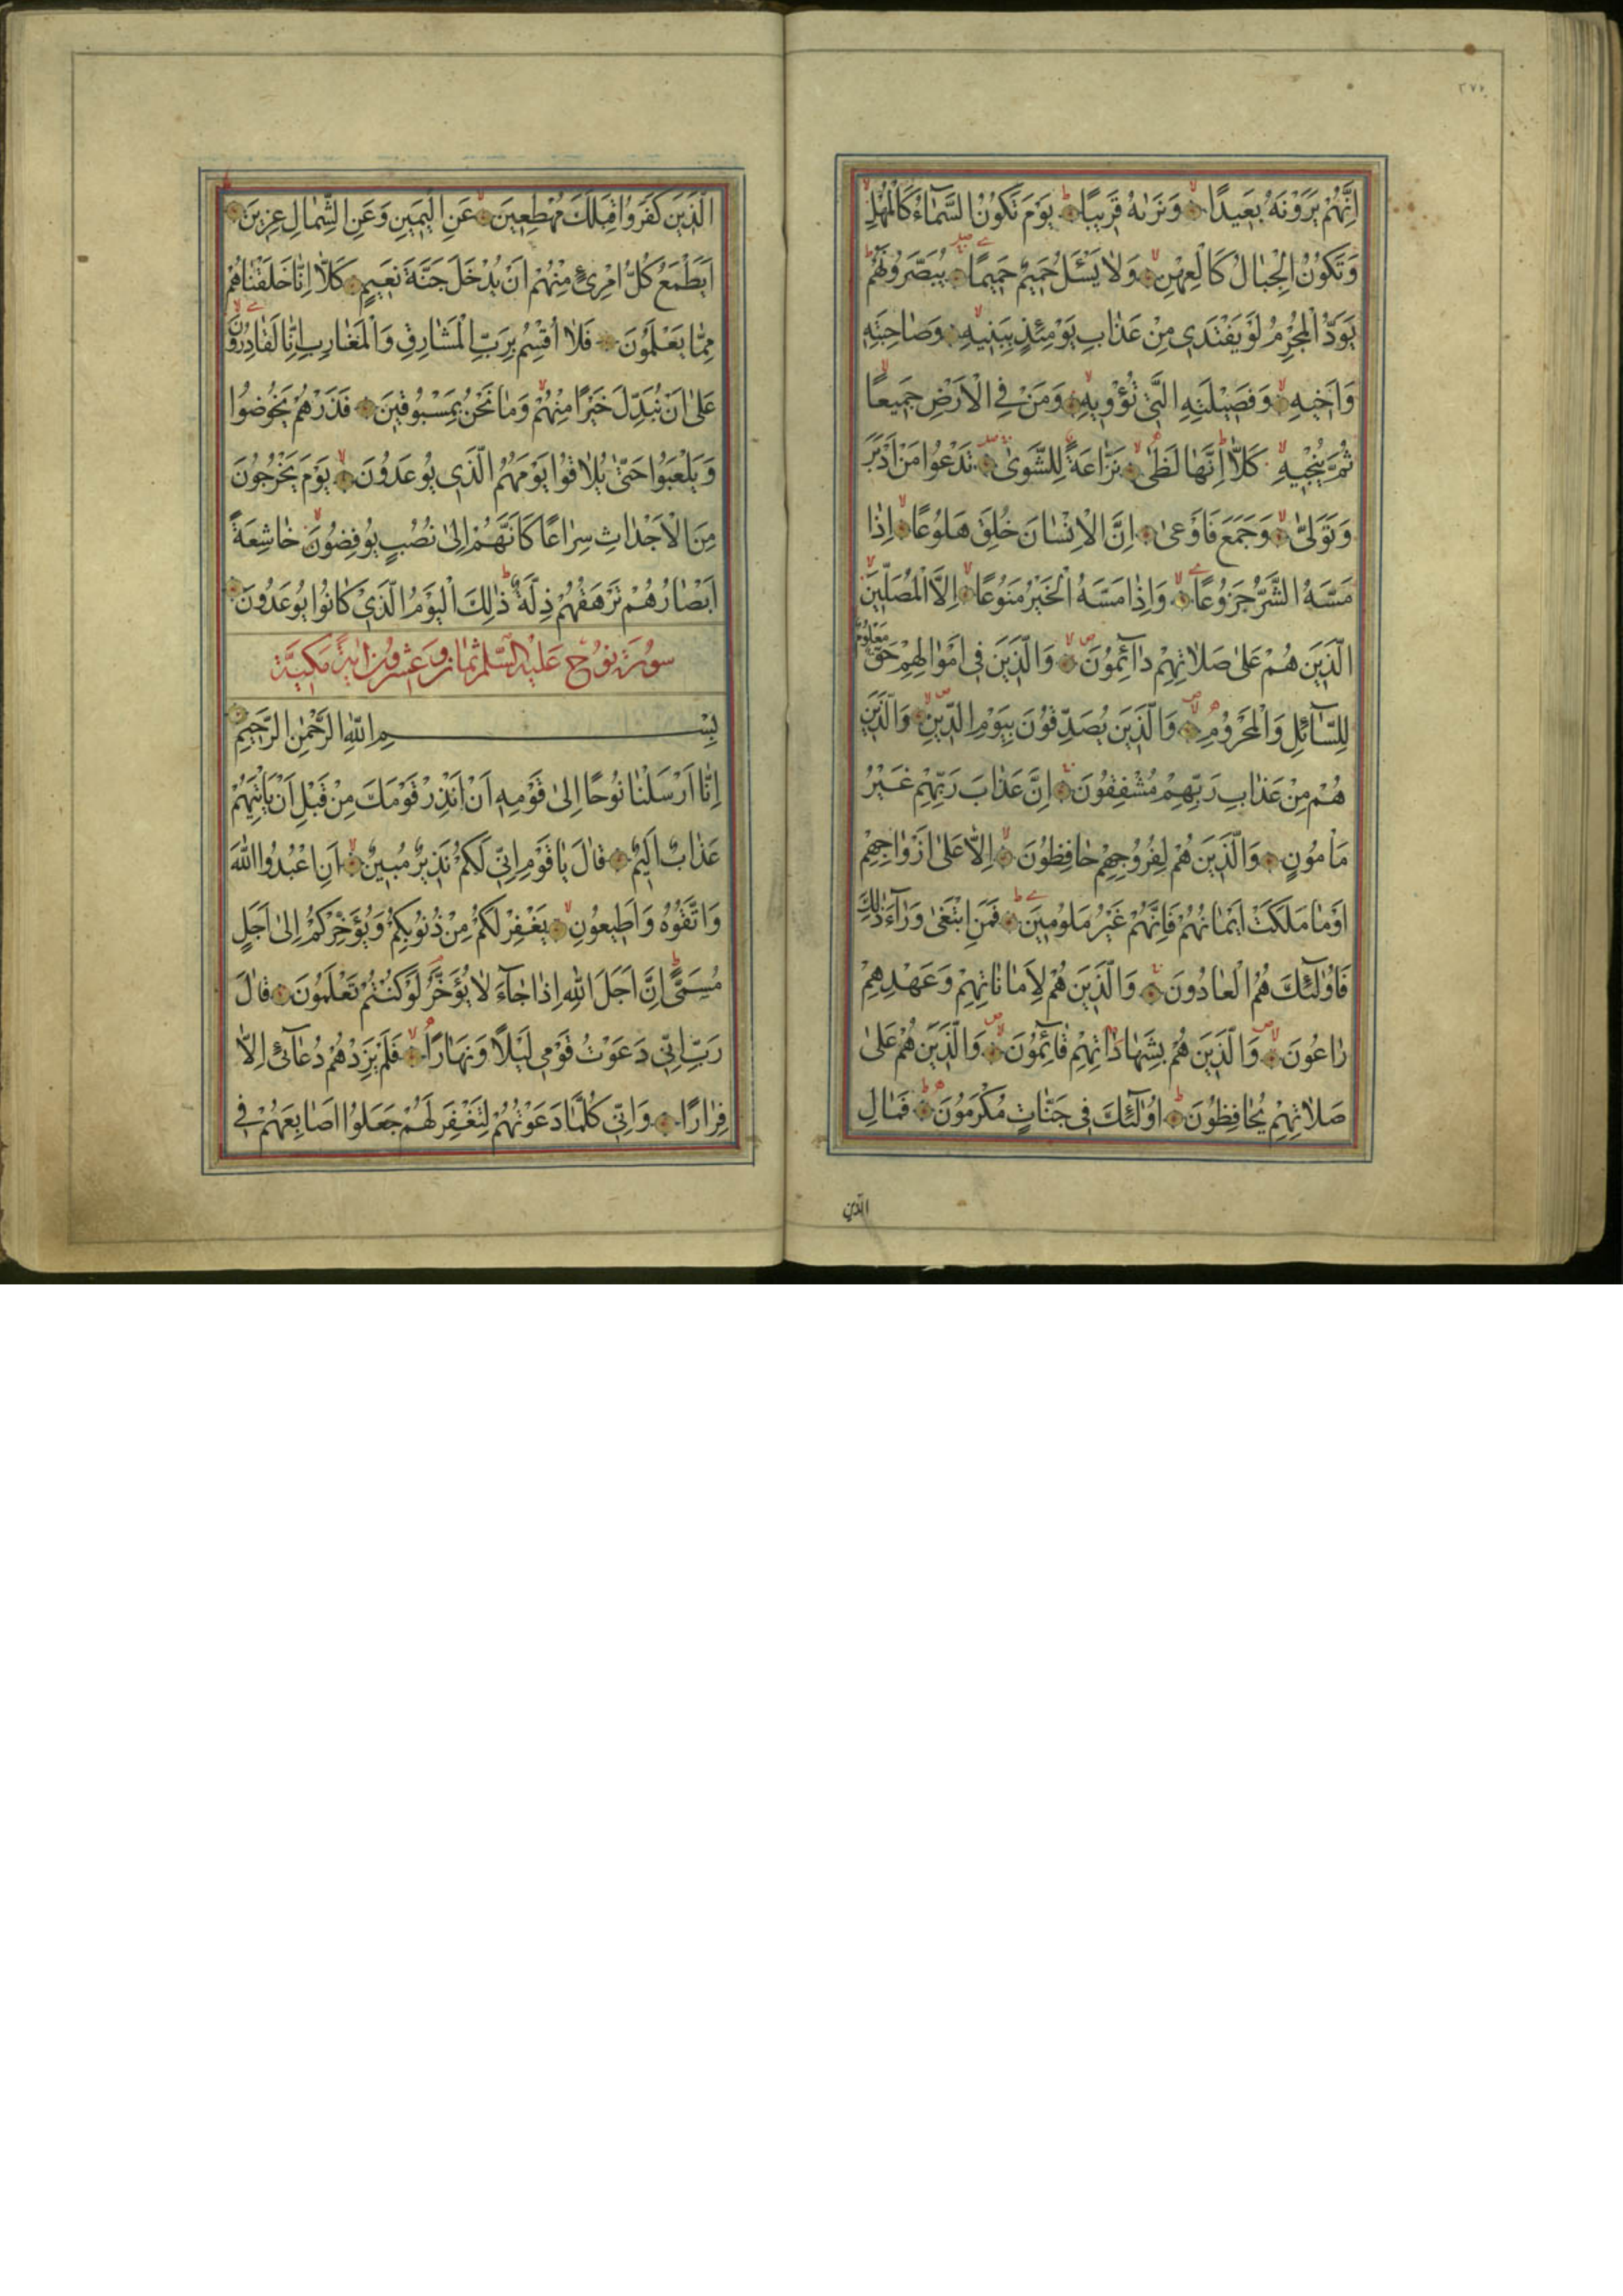 ٢٧٧
اِنَّهُمْ يَرَوْنَهُ بَعٖيدًا وَنَرٰيهُ قَرٖيبًا يَوْمَ تَكُونُ السَّمَٓاءُ كَالْمُهْلِ
وَتَكُونُ الْجِبَالُ كَالْعِهْنِ وَلَا يَسْـَٔلُ حَمٖيمٌ حَمٖيمًا يُبَصَّرُونَهُمْ
يَوَدُّ الْمُجْرِمُ لَوْ يَفْتَدٖى مِنْ عَذَابِ يَوْمِئِذٍ بِبَنٖيهِ وَصَاحِبَتِهٖ
وَاَخٖيهِ وَفَصٖيلَتِهِ الَّتٖى تُؤْوٖيهِ وَمَنْ فِى الْاَرْضِ جَمٖيعًا
ثُمَّ يُنْجٖيهِ كَلَّا اِنَّهَا لَظٰى نَزَّاعَةً لِلشَّوٰى تَدْعُوا مَنْ اَدْبَرَ
وَتَوَلّٰى وَجَمَعَ فَاَوْعٰى اِنَّ الْاِنْسَانَ خُلِقَ هَلُوعًا اِذَا
مَسَّهُ الشَّرُّ جَزُوعًا وَاِذَا مَسَّهُ الْخَيْرُ مَنُوعًا اِلَّا الْمُصَلّٖينَ
الَّذٖينَ هُمْ عَلٰى صَلَاتِهِمْ دَٓائِمُونَ وَالَّذٖينَ فٖى اَمْوَالِهِمْ حَقٌّ مَعْلُومٌ
لِلسَّٓائِلِ وَالْمَحْرُومِ وَالَّذٖينَ يُصَدِّقُونَ بِيَوْمِ الدّٖينِ وَالَّذٖينَ
هُمْ مِنْ عَذَابِ رَبِّهِمْ مُشْفِقُونَ اِنَّ عَذَابَ رَبِّهِمْ غَيْرُ
مَاْمُونٍ وَالَّذٖينَ هُمْ لِفُرُوجِهِمْ حَافِظُونَ اِلَّا عَلٰى اَزْوَاجِهِمْ
اَوْ مَا مَلَكَتْ اَيْمَانُهُمْ فَاِنَّهُمْ غَيْرُ مَلُومٖينَ فَمَنِ ابْتَغٰى وَرَٓاءَ ذٰلِكَ
فَاُولٰٓئِكَ هُمُ الْعَادُونَ وَالَّذٖينَ هُمْ لِاَمَانَاتِهِمْ وَعَهْدِهِمْ
رَاعُونَ وَالَّذٖينَ هُمْ بِشَهَادَاتِهِمْ قَٓائِمُونَ وَالَّذٖينَ هُمْ عَلٰى
صَلَاتِهِمْ يُحَافِظُونَ اُولٰٓئِكَ فٖى جَنَّاتٍ مُكْرَمُونَ فَمَالِ
الذين
الَّذٖينَ كَفَرُوا قِبَلَكَ مُهْطِعٖينَ عَنِ الْيَمٖينِ وَعَنِ الشِّمَالِ عِزٖينَ
اَيَطْمَعُ كُلُّ امْرِئٍ مِنْهُمْ اَنْ يُدْخَلَ جَنَّةَ نَعٖيمٍ كَلَّا اِنَّا خَلَقْنَاهُمْ
مِمَّا يَعْلَمُونَ فَلَا اُقْسِمُ بِرَبِّ الْمَشَارِقِ وَالْمَغَارِبِ اِنَّا لَقَادِرُونَ
عَلٰى اَنْ نُبَدِّلَ خَيْرًا مِنْهُمْ وَمَا نَحْنُ بِمَسْبُوقٖينَ فَذَرْهُمْ يَخُوضُوا
وَيَلْعَبُوا حَتّٰى يُلَاقُوا يَوْمَهُمُ الَّذٖى يُوعَدُونَ يَوْمَ يَخْرُجُونَ
مِنَ الْاَجْدَاثِ سِرَاعًا كَاَنَّهُمْ اِلٰى نُصُبٍ يُوفِضُونَ خَاشِعَةً
اَبْصَارُهُمْ تَرْهَقُهُمْ ذِلَّةٌ ذٰلِكَ الْيَوْمُ الَّذٖى كَانُوا يُوعَدُونَ
سورة نوح عليه السلم ثمان وعشرون اية مكية
بِسْمِ اللّٰهِ الرَّحْمٰنِ الرَّحٖيمِ
اِنَّا اَرْسَلْنَا نُوحًا اِلٰى قَوْمِهٖ اَنْ اَنْذِرْ قَوْمَكَ مِنْ قَبْلِ اَنْ يَاْتِيَهُمْ
عَذَابٌ اَلٖيمٌ قَالَ يَا قَوْمِ اِنّٖى لَكُمْ نَذٖيرٌ مُبٖينٌ اَنِ اعْبُدُوا اللّٰهَ
وَاتَّقُوهُ وَاَطٖيعُونِ يَغْفِرْ لَكُمْ مِنْ ذُنُوبِكُمْ وَيُؤَخِّرْكُمْ اِلٰى اَجَلٍ
مُسَمًّى اِنَّ اَجَلَ اللّٰهِ اِذَا جَٓاءَ لَا يُؤَخَّرُ لَوْ كُنْتُمْ تَعْلَمُونَ قَالَ
رَبِّ اِنّٖى دَعَوْتُ قَوْمٖى لَيْلًا وَنَهَارًا فَلَمْ يَزِدْهُمْ دُعَٓائٖى اِلَّا
فِرَارًا وَاِنّٖى كُلَّمَا دَعَوْتُهُمْ لِتَغْفِرَ لَهُمْ جَعَلُوا اَصَابِعَهُمْ فٖى